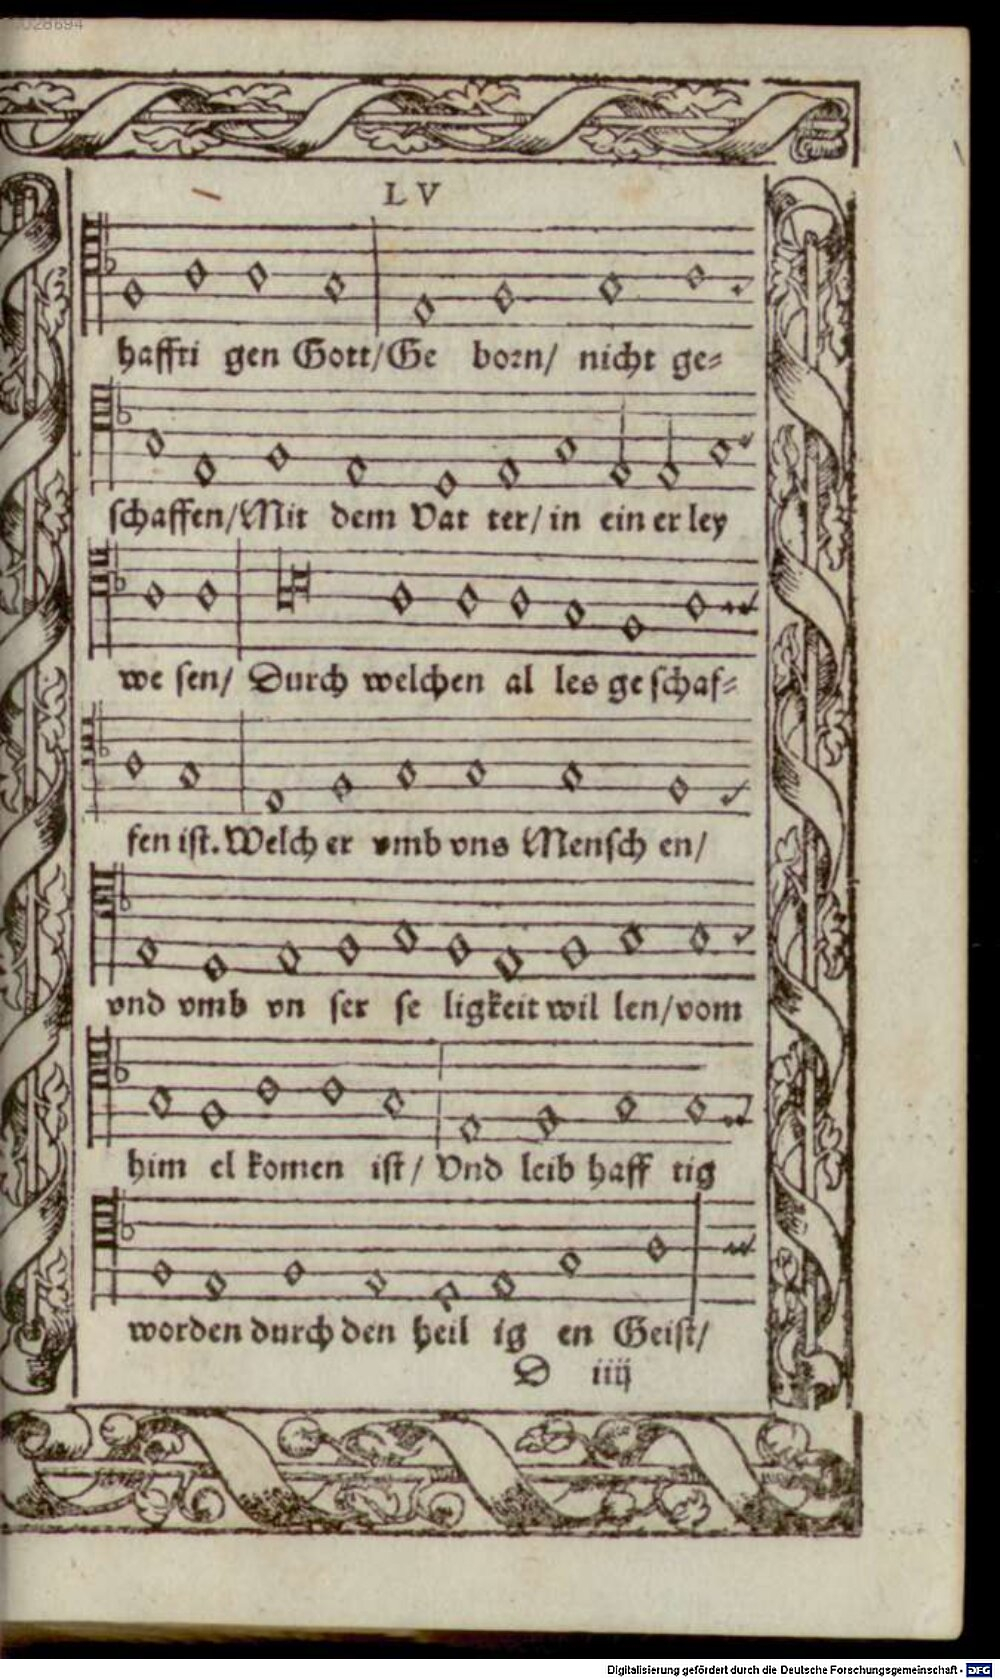 028694
LV
haffti gen Gott/Ge born/ nicht ge=
schaffen/Mit dem Vat ter/ in ein er ley
we sen/ Durch welchen al les ge schaf=
fen ist. Welch er vmb vns Mensch en/
vnd vmb vn ser se ligkeit wil len/vom
him el komen ist/ Vnd leib haff tig
worden durch den heil ig en Geist/
D iiij
Digitalisierung gefördert durch die Deutsche Forschungsgemeinschaft - DFG